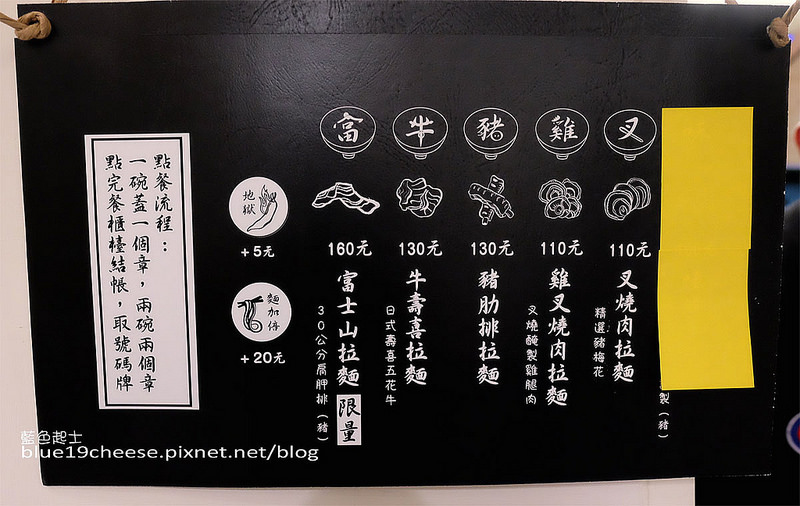 製（豬）
叉
110元
叉燒肉拉麵
精選豬梅花
雞
110元
雞叉燒肉拉麵
叉燒醃製雞腿肉
豬
130元
豬肋排拉麵
牛
130元
牛壽喜拉麵
日式壽喜五花牛
富
160元
富士山拉麵 限量
30公分肩胛排（豬）
地獄
+5元
麵加倍
+20元
點餐流程：
一碗蓋一個章，兩碗兩個章
點完餐櫃檯結帳，取號碼牌
藍色起士
blue19cheese.pixnet.net/blog